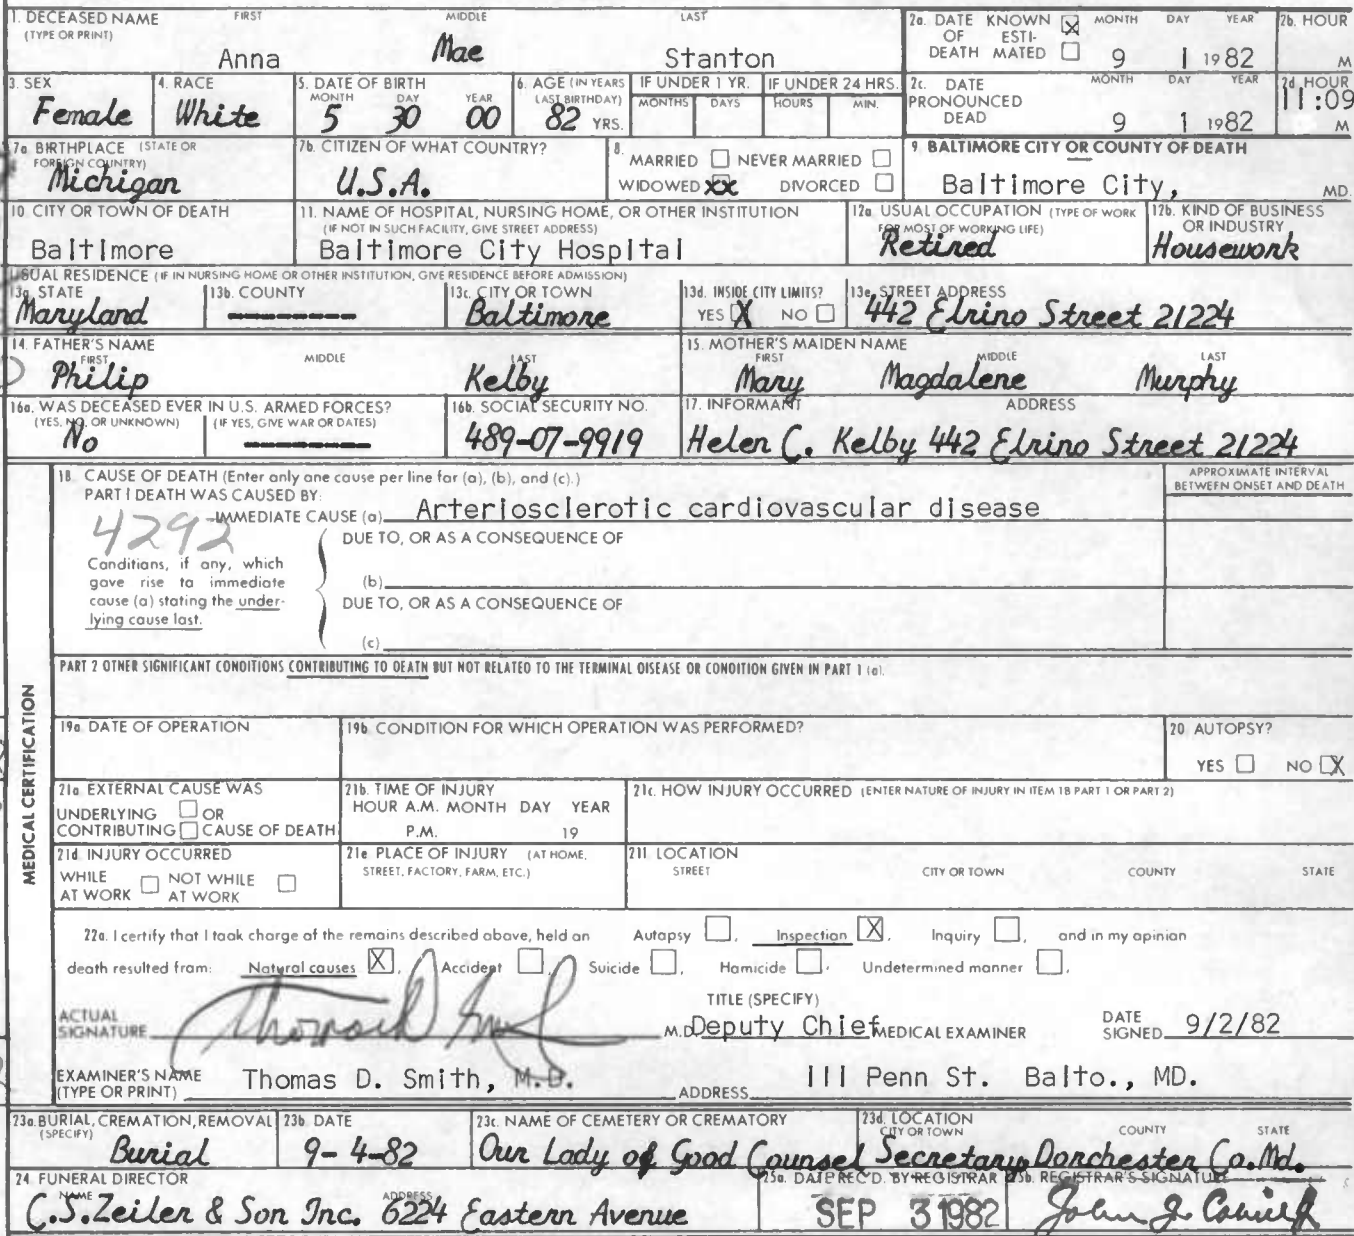 1. DECEASED NAME FIRST MIDDLE LAST
(TYPE OR PRINT)
Anna Mae Stanton
2a. DATE KNOWN ☒ MONTH DAY YEAR 2b. HOUR
OF ESTI-
DEATH MATED ☐ 9 1 1982 M
3. SEX Female
4. RACE White
5. DATE OF BIRTH
MONTH DAY YEAR
5 30 00
6. AGE (IN YEARS
LAST BIRTHDAY)
82 YRS.
IF UNDER 1 YR. IF UNDER 24 HRS.
MONTHS DAYS HOURS MIN.
2c. DATE MONTH DAY YEAR 2d. HOUR
PRONOUNCED 11:09
DEAD 9 1 1982 M
7a. BIRTHPLACE (STATE OR
FOREIGN COUNTRY)
Michigan
7b. CITIZEN OF WHAT COUNTRY?
U.S.A.
8.
MARRIED ☐ NEVER MARRIED ☐
WIDOWED xx DIVORCED ☐
9. BALTIMORE CITY OR COUNTY OF DEATH
Baltimore City, MD.
10. CITY OR TOWN OF DEATH
Baltimore
11. NAME OF HOSPITAL, NURSING HOME, OR OTHER INSTITUTION
(IF NOT IN SUCH FACILITY, GIVE STREET ADDRESS)
Baltimore City Hospital
12a. USUAL OCCUPATION (TYPE OF WORK
FOR MOST OF WORKING LIFE)
Retired
12b. KIND OF BUSINESS
OR INDUSTRY
Housework
USUAL RESIDENCE (IF IN NURSING HOME OR OTHER INSTITUTION, GIVE RESIDENCE BEFORE ADMISSION)
13a. STATE
Maryland
13b. COUNTY
---------
13c. CITY OR TOWN
Baltimore
13d. INSIDE CITY LIMITS?
YES ☒ NO ☐
13e. STREET ADDRESS
442 Elrino Street 21224
14. FATHER'S NAME
FIRST MIDDLE LAST
Philip Kelby
15. MOTHER'S MAIDEN NAME
FIRST MIDDLE LAST
Mary Magdalene Murphy
16a. WAS DECEASED EVER IN U.S. ARMED FORCES?
(YES, NO, OR UNKNOWN) (IF YES, GIVE WAR OR DATES)
No ---------
16b. SOCIAL SECURITY NO.
489-07-9919
17. INFORMANT ADDRESS
Helen C. Kelby 442 Elrino Street 21224
MEDICAL CERTIFICATION
18. CAUSE OF DEATH (Enter only one cause per line for (a), (b), and (c).)
PART I DEATH WAS CAUSED BY:
APPROXIMATE INTERVAL
BETWEEN ONSET AND DEATH
IMMEDIATE CAUSE (a) Arteriosclerotic cardiovascular disease
4292
DUE TO, OR AS A CONSEQUENCE OF
Conditions, if any, which
gave rise to immediate
cause (a) stating the under-
lying cause last.
(b)
DUE TO, OR AS A CONSEQUENCE OF
(c)
PART 2 OTHER SIGNIFICANT CONDITIONS CONTRIBUTING TO DEATH BUT NOT RELATED TO THE TERMINAL DISEASE OR CONDITION GIVEN IN PART 1 (a).
19a. DATE OF OPERATION
19b. CONDITION FOR WHICH OPERATION WAS PERFORMED?
20. AUTOPSY?
YES ☐ NO ☒
21a. EXTERNAL CAUSE WAS
UNDERLYING ☐ OR
CONTRIBUTING ☐ CAUSE OF DEATH
21b. TIME OF INJURY
HOUR A.M. MONTH DAY YEAR
P.M. 19
21c. HOW INJURY OCCURRED (ENTER NATURE OF INJURY IN ITEM 18 PART 1 OR PART 2)
21d. INJURY OCCURRED
WHILE ☐ NOT WHILE ☐
AT WORK AT WORK
21e. PLACE OF INJURY (AT HOME,
STREET, FACTORY, FARM, ETC.)
21f. LOCATION
STREET CITY OR TOWN COUNTY STATE
22a. I certify that I took charge of the remains described above, held an Autopsy ☐, Inspection ☒, Inquiry ☐, and in my opinion
death resulted from: Natural causes ☒, Accident ☐, Suicide ☐, Homicide ☐, Undetermined manner ☐,
TITLE (SPECIFY)
ACTUAL
SIGNATURE M.D. Deputy Chief MEDICAL EXAMINER
DATE
SIGNED 9/2/82
EXAMINER'S NAME
(TYPE OR PRINT) Thomas D. Smith, M.D. ADDRESS 111 Penn St. Balto., MD.
23a. BURIAL, CREMATION, REMOVAL
(SPECIFY)
Burial
23b. DATE
9-4-82
23c. NAME OF CEMETERY OR CREMATORY
Our Lady of Good Counsel
23d. LOCATION
CITY OR TOWN COUNTY STATE
Secretary Dorchester Co. Md.
24. FUNERAL DIRECTOR
NAME ADDRESS
C.S. Zeiler & Son Inc. 6224 Eastern Avenue
25a. DATE REC'D. BY REGISTRAR
SEP 3 1982
25b. REGISTRAR'S SIGNATURE
John J.